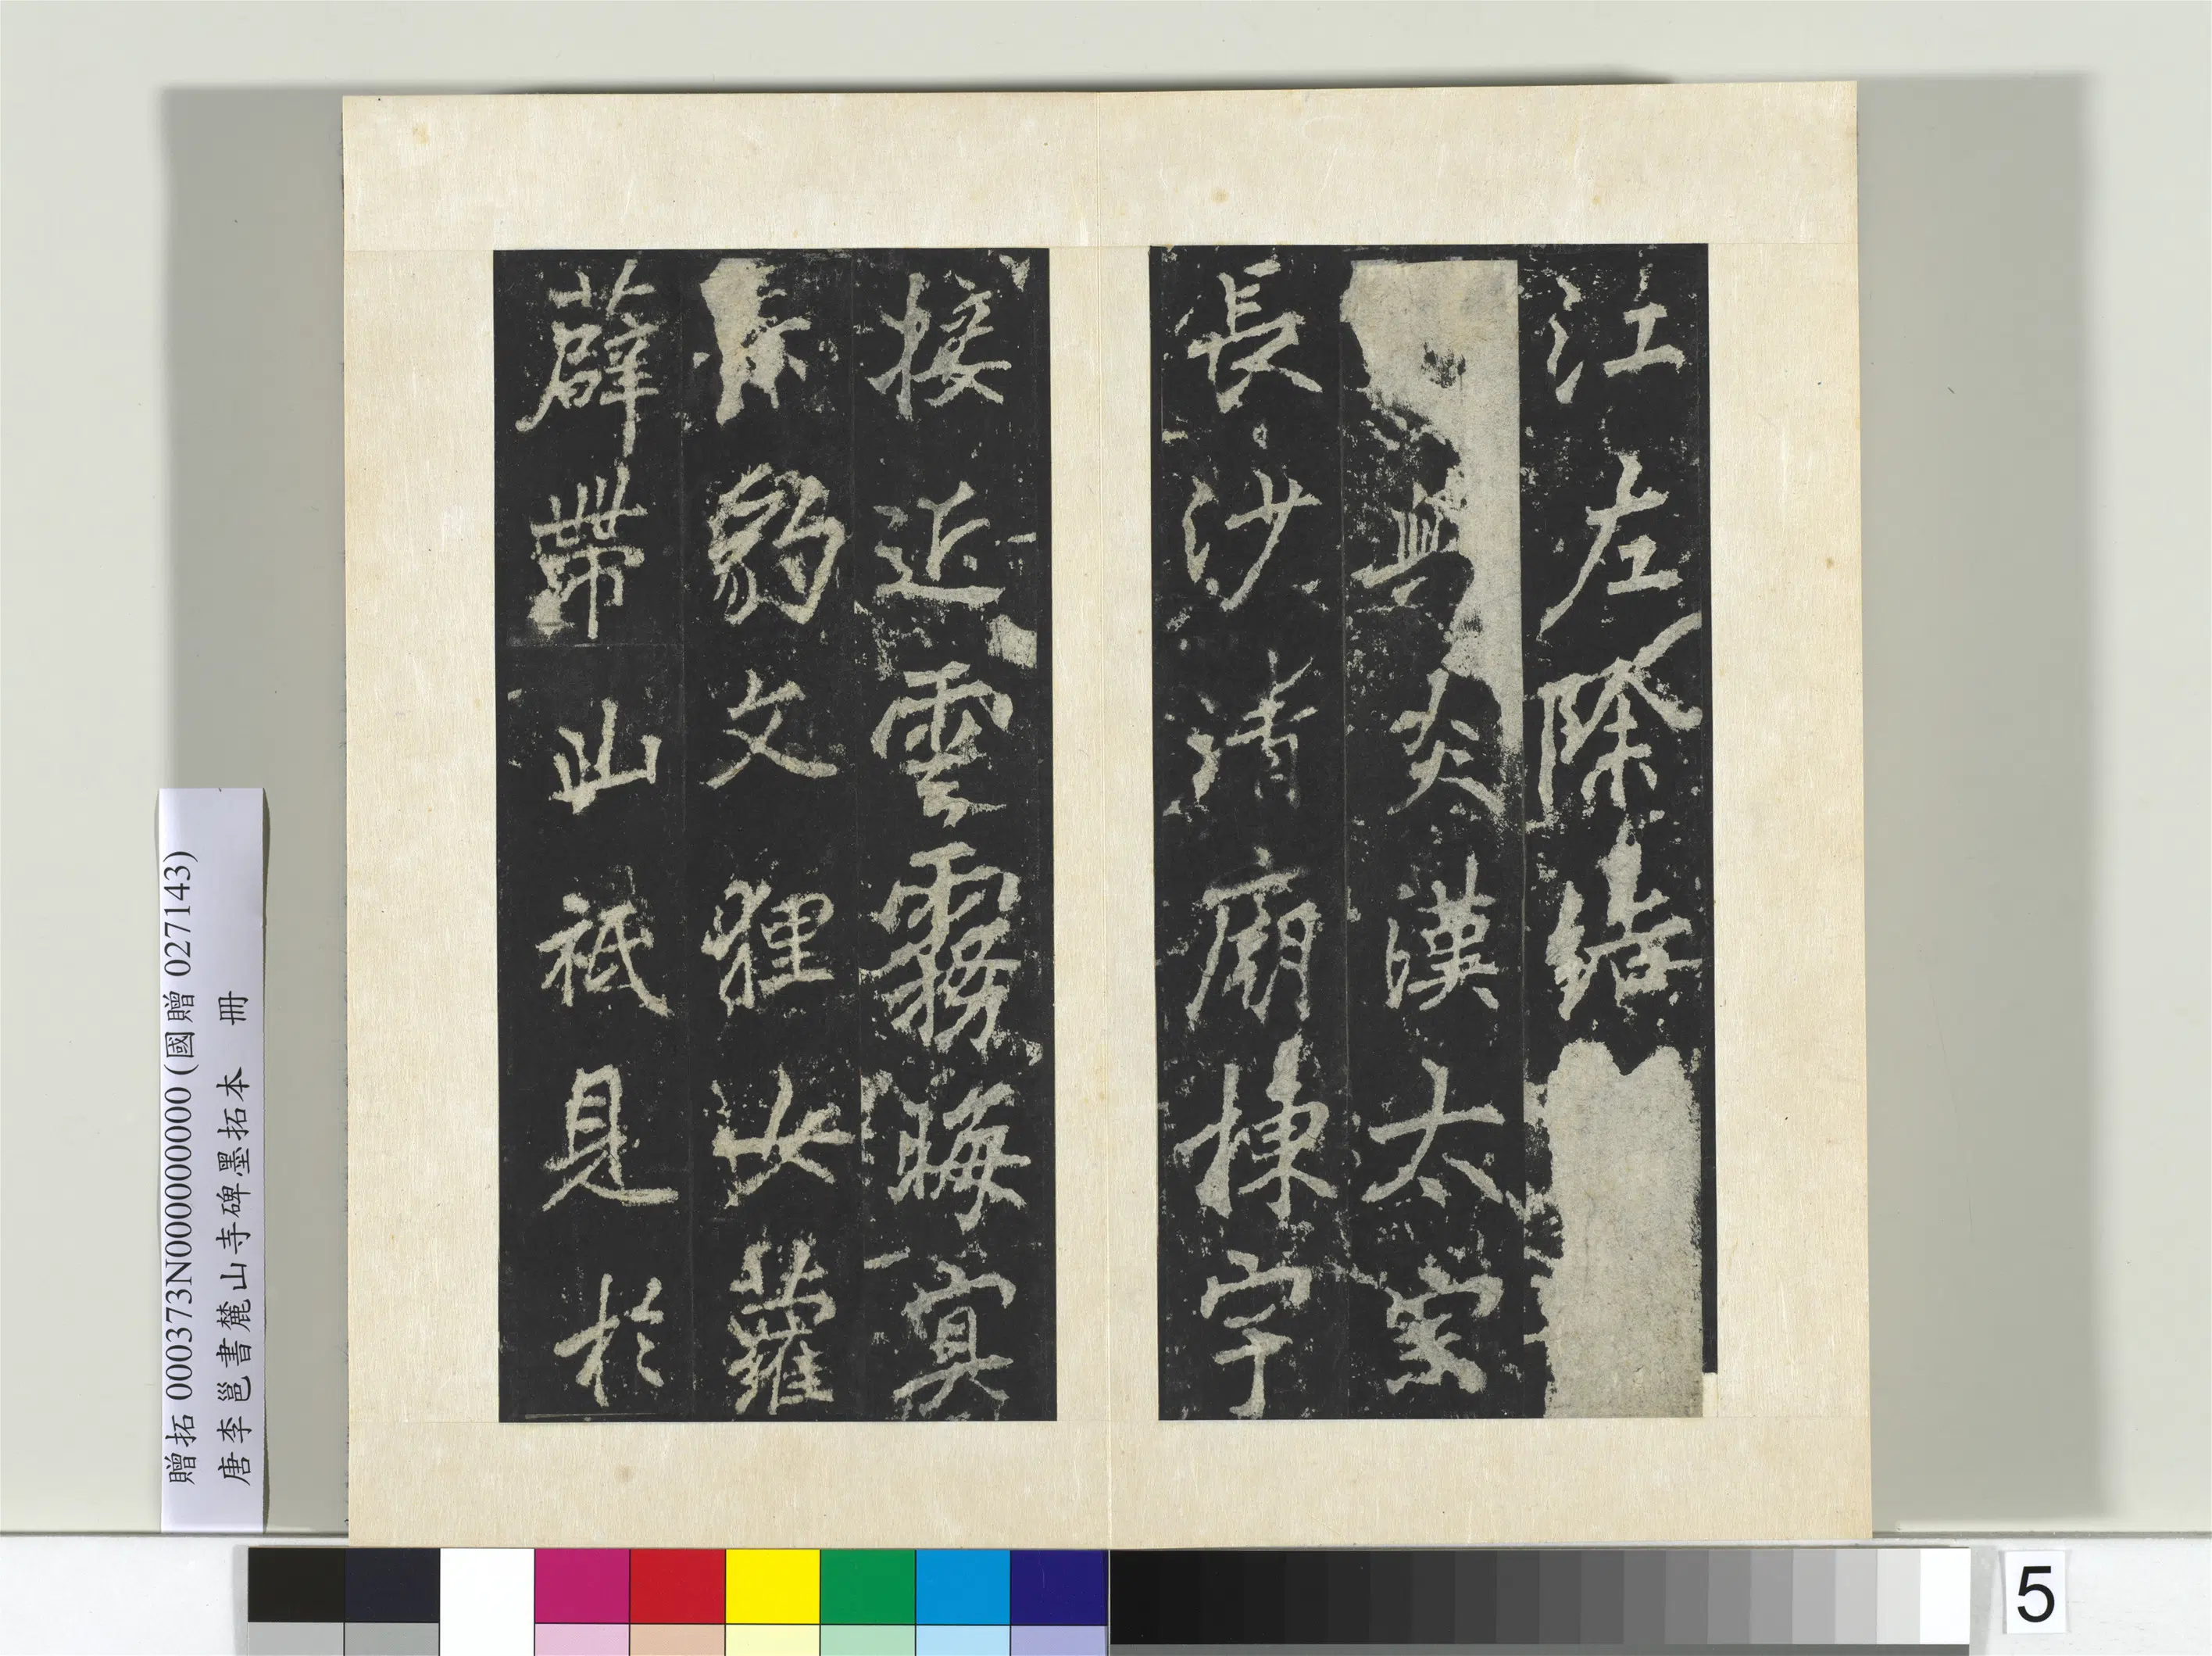 江左除結
與炎漢太宗
長沙清廟棟宇
接近雲霧晦冥
赤豹文狸女蘿
薜帶山祇見於
贈拓 000373N000000000 (國贈 027143)
唐李邕書麓山寺碑墨拓本 冊
5